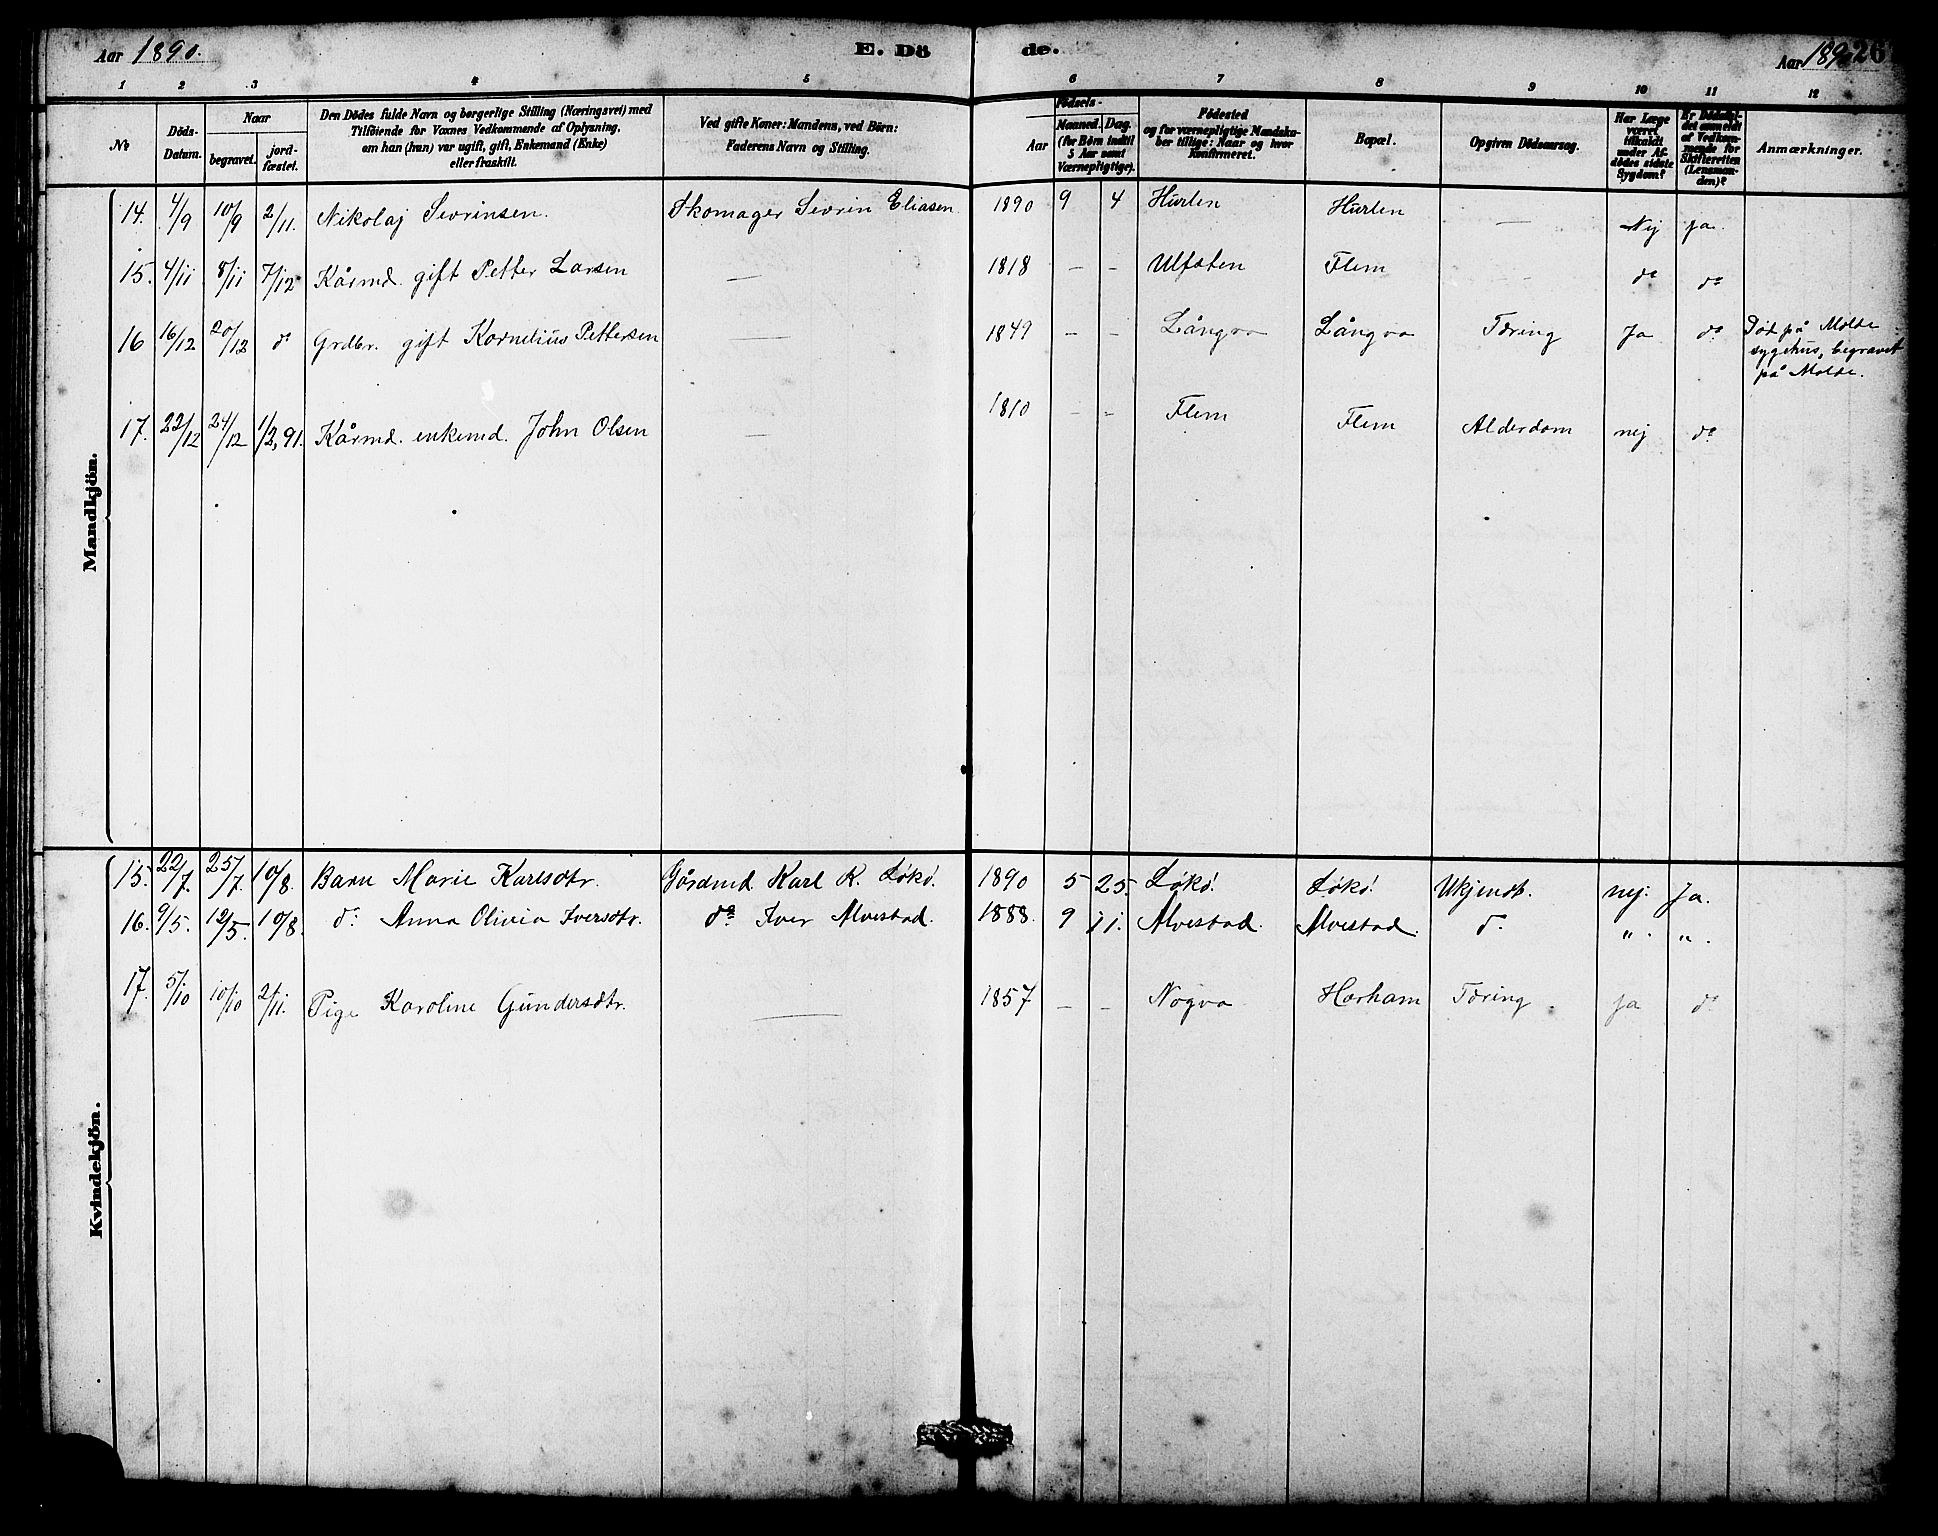 Aar 1890. E. Dö de. Aar 1890 26
1 2 3 4 5 6 7 8 9 10 11 12
No
Döds-Datum.
Naar
begravet.
jord-fæstet.
Den Dödes fulde Navn og borgerlige Stilling (Næringsvei) med
Tilföiende for Voxnes Vedkommende af Oplysning,
om han (hun) var ugift, gift, Enkemand (Enke)
eller fraskilt.
Ved gifte Koner: Mandens, ved Börn:
Faderens Navn og Stilling.
Födsels-
Aar
Maaned. Dag.
(for Börn indtil
5 Aar samt
Værnepligtige).
Födested
og for værnepligtige Mandska-
ber tillige: Naar og hvor
Konfirmeret.
Bopæl.
Opgiven Dödsaarsag.
Har Læge
været
tilkaldt
under Af-
dödes sidste
Sygdom?
Er Dödsfal-
det anmeldt
af Vedkom-
mende for
Skifteretten
(Lensman-
den)?
Anmærkninger.
Mandkjön.
14. 4/9 10/9 2/11. Nikolaj Sevrinsen. Skomager Sevrin Eliasen 1890 9 4 Hurlen Hurlen — Nej ja.
15. 4/11 8/11 7/12 Kårmd. gift Petter Larsen — 1818 – – Ulfsten Flem — do do
16 16/12 20/12 do Grdbr. gift Kornelius Pettersen — 1849 – – Långva Långva Tæring Ja do Död på Molde
sygehus, begravet
på Molde.
17. 22/12 24/12 1/2, 91. Kårmd. enkemd. John Olsen — 1810 – – Flem Flem Alderdom nej do
Kvindekjön.
15. 22/7. 25/7. 10/8. Barn Marie Karlsdtr. Gårdmd. Karl K. Løkø. 1890 5 25. Løkø. Løkø. Ukjendt. nej. Ja.
16. 9/5. 12/5. 10/8. do Anna Olivia Iversdtr. do Iver Alvestad. 1888. 9 11. Alvestad. Alvestad. do " . " .
17. 5/10 10/10 2/11. Pige Karoline Gundersdtr. — 1857 – – Nogva Harham Tæring. ja do